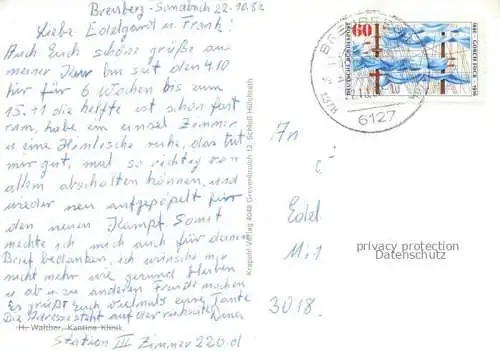 Breuberg-Sandbach 22-10.82
Liebe Edelgard u. Frank!
Auch Euch schöne größe aus
meiner Kur bin seit den 4.10
hir für 6 Wochen bis zum
15.11 die helfte ist schon fast
rum, habe ein einsel Zimmer
u eine Himlische ruhe, das tut
mir gut, mal so richtig von
allem abschalten können, und
wieder neu aufgepöpelt für
den neuen Kampf. Somst
mechte ich mich auch für deinen
Brief bedanken, ich wünsche mir
nicht mehr wie gesund bleiben
u ab u zu anderen Freude machen
Es grüßt Euch vielmals eure Tante
Die Adresse steht auf der nächsten
H. Walther, Kantine Klinik
Station III Zimmer 220.d
Krapohl-Verlag 4048 Grevenbroich 12, Schloß Hülchrath
60
DEUTSCHE BUNDESPOST
6127
An
Edel
Mi 1
3018.
privacy protection
Datenschutz